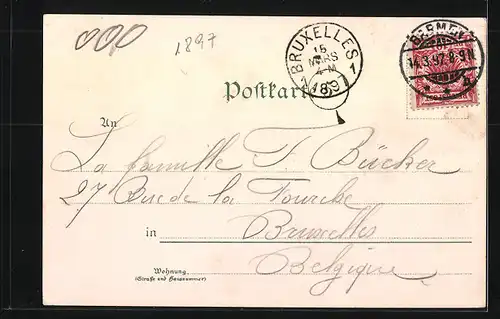 1897
BRUXELLES
15
MARS
4-M
1 1897 1
BREMEN
14.3.97.8-9N.
Postkarte
An
La famille F. Bücker
27 Rue de la Fourche
in Bruxelles
Belgique
Wohnung
(Straße und Hausnummer)